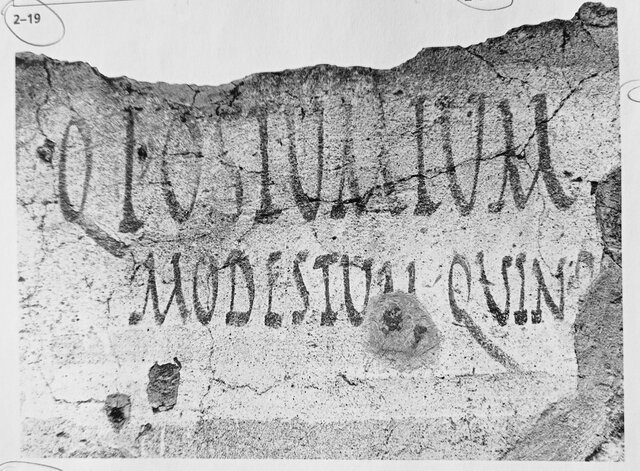 2–19
Q POSTVMIVM
MODESTVM QVIN